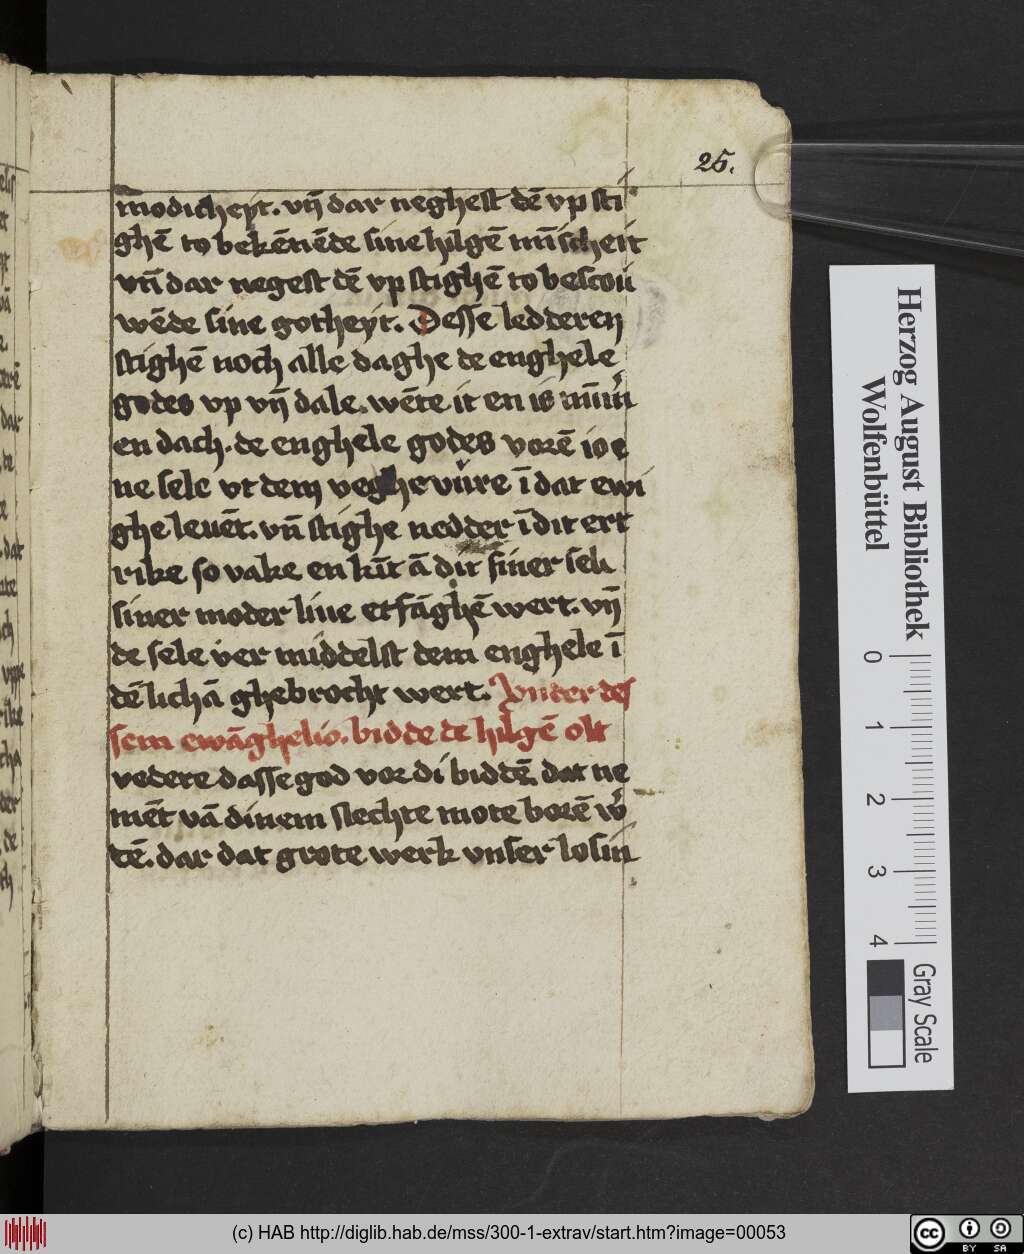 25.
modicheyt. vn̄ dar neghest dē vp sti
ghē to bekēnēde sine hilgē mīscheit
vn̄ dar negest dē vp stighē to bescou
wēde sine gotheyt. Desse ledderen
stighē noch alle daghe de enghele
godes vp vn̄ dale. wēte it en is nūm̄
en dach. de enghele godes vorē io e
ne sele vt dem veghe vure ī dat ewi
ghe leuēt. vn̄ stighe nedder ī dit ert
rike so vake en kīt ā dit siner seli
siner moder liue etfāghē wert. vn̄
de sele ver middelst dem enghele ī
dē lichā ghebrocht wert. Vnder des
sem ewāghelio. bidde de hilgē olt
vedere dasse god vor di biddē. dat ne
mēt vā dinem slechte mote borē w
dē. dar dat grote werk vnser losin
Herzog August Bibliothek
Wolfenbüttel
0 1 2 3 4
Gray Scale
(c) HAB http://diglib.hab.de/mss/300-1-extrav/start.htm?image=00053
cc BY SA